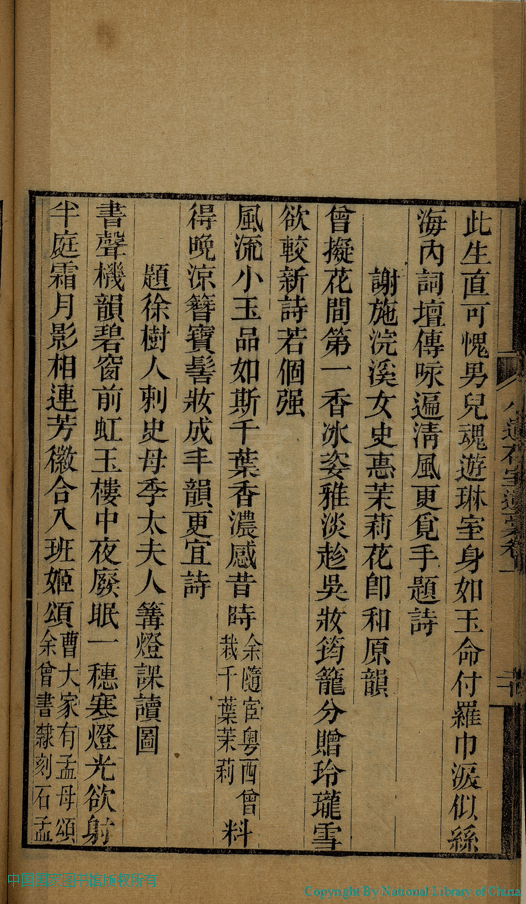 此生直可愧男兒魂遊琳室身如玉命付羅巾淚似絲
海內詞壇傳咏遍清風更覓手題詩
謝施浣溪女史惠茉莉花卽和原韻
曾擬花間第一香冰姿雅淡趁吳妝筠籠分贈玲瓏雪
欲較新詩若個强
風流小玉品如斯千葉香濃感昔時余隨宦粵西曾栽千葉茉莉料
得晚涼簪寶髻妝成丰韻更宜詩
題徐樹人刺史母季太夫人篝燈課讀圖
書聲機韻碧窗前虹玉樓中夜廢眠一穗寒燈光欲射
半庭霜月影相連芳徽合入班姬頌曹大家有孟母頌余曾書隸刻石孟
Copyright By National Library of China